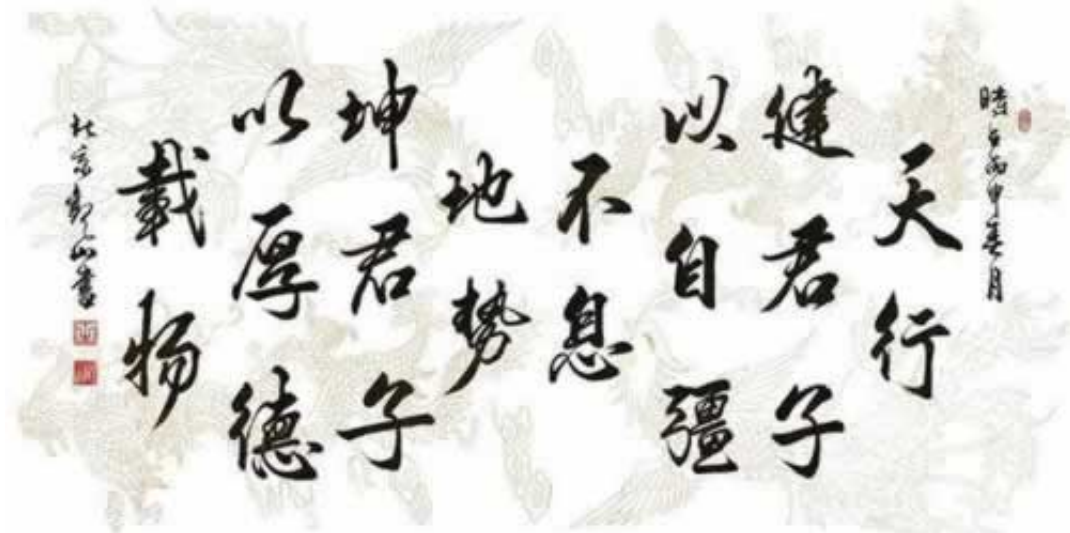 時在丙申春月
天行
健君子
以自彊
不息
地势
坤君子
以厚德
載物
北京郭山書